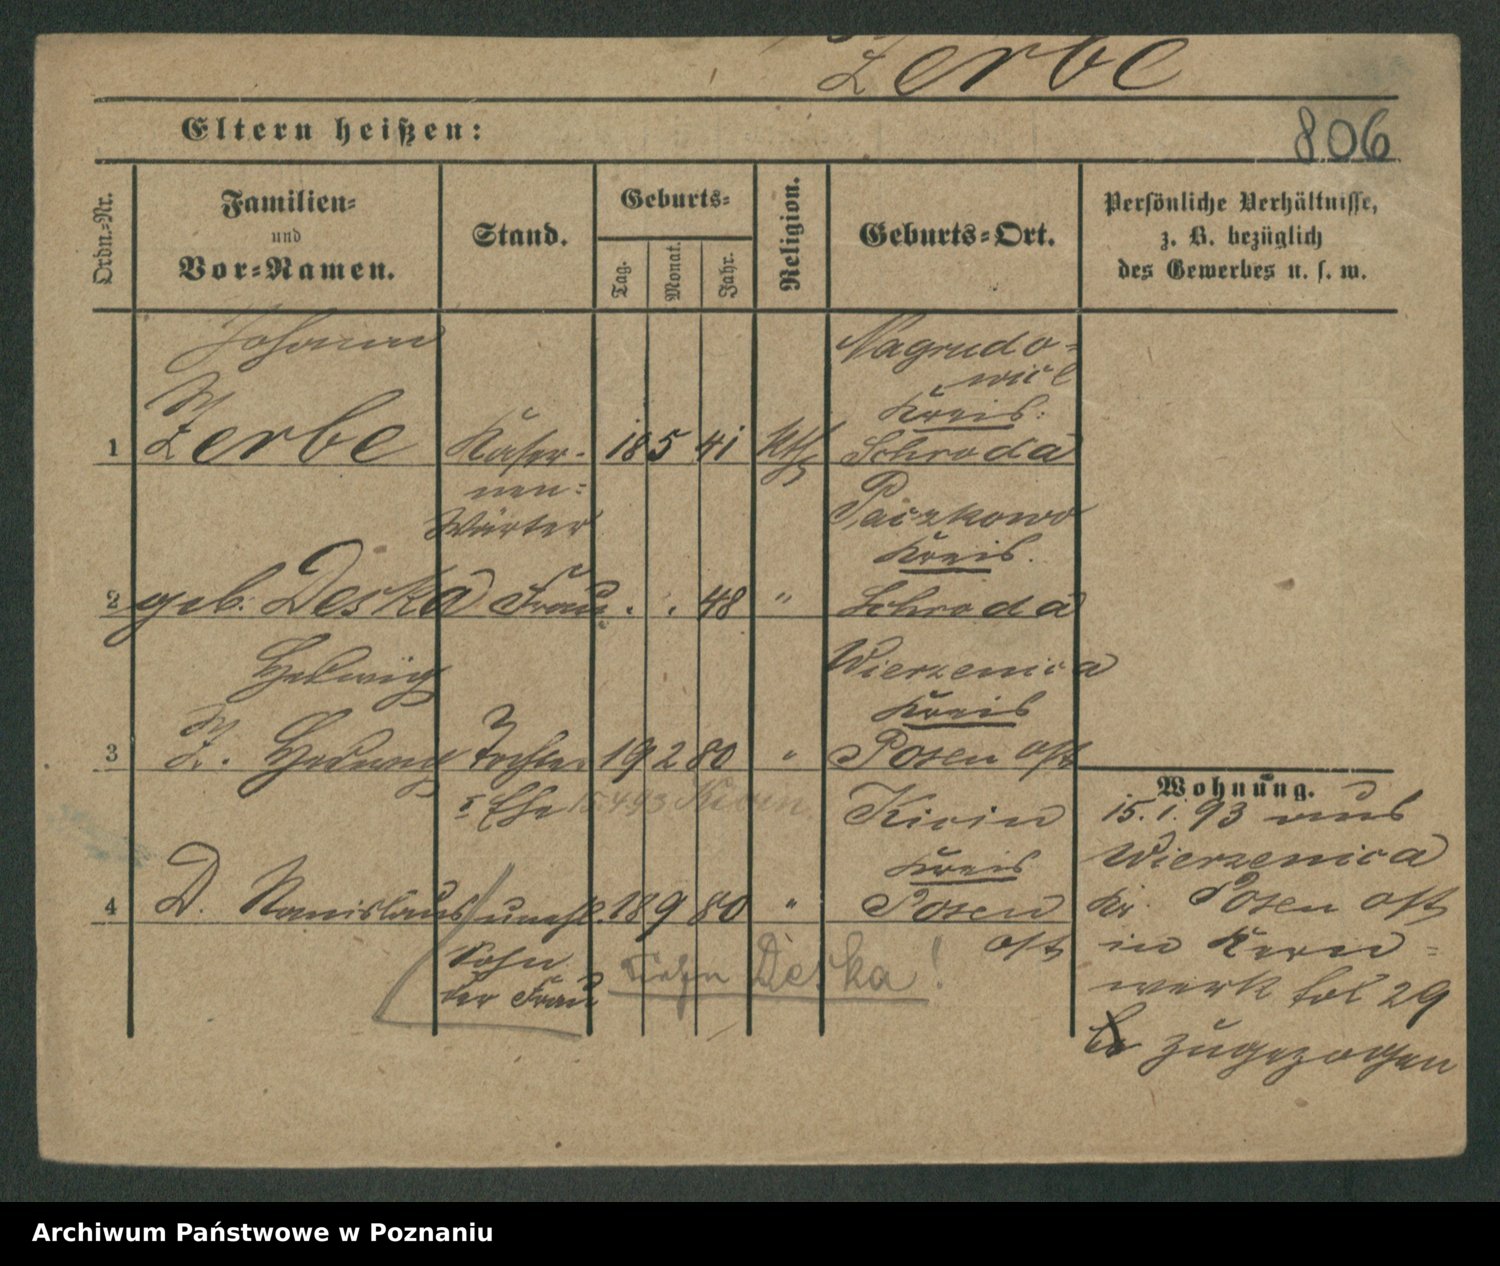 Zerbe
Eltern heißen:
806
Ordn.-Nr.
Familien-
und
Vor-Namen.
Stand.
Geburts-
Tag.
Monat.
Jahr.
Religion.
Geburts-Ort.
Persönliche Verhältnisse,
z. B. bezüglich
des Gewerbes u. s. w.
Johann
Nagradowice
Kreis
1 Zerbe Kaser- 18 5 41 kth Schroda
nen-
Wärter
Paczkowo
Kreis
2 geb. Deska Frau . . 48 " Schroda
Hedwig
Wierzenica
Kreis
3 Z. Hedwig Tochter 19 2 80 " Posen Ost
Ehe
Kicin
Kreis
4 D. Stanislaus unehl. 18 9 80 " Posen
Ost
Sohn
der Frau
Deska!
Wohnung.
15.1.93 aus
Wierzenica
Kr. Posen Ost
in Kern-
werk
zugezogen
Archiwum Państwowe w Poznaniu